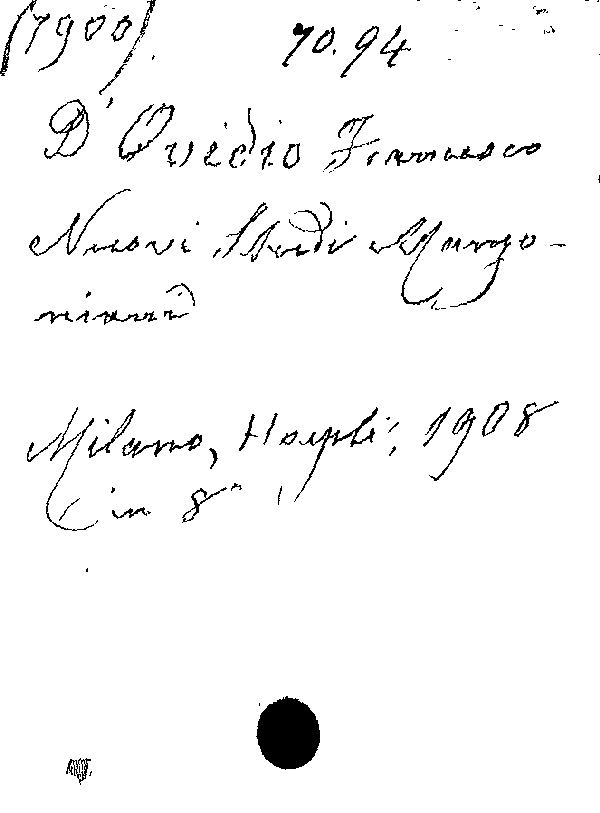 (7900). 70.94
D'Ovidio Francesco
Nuovi Studi Manzo-
niani
Milano, Hoepli, 1908
in 8°